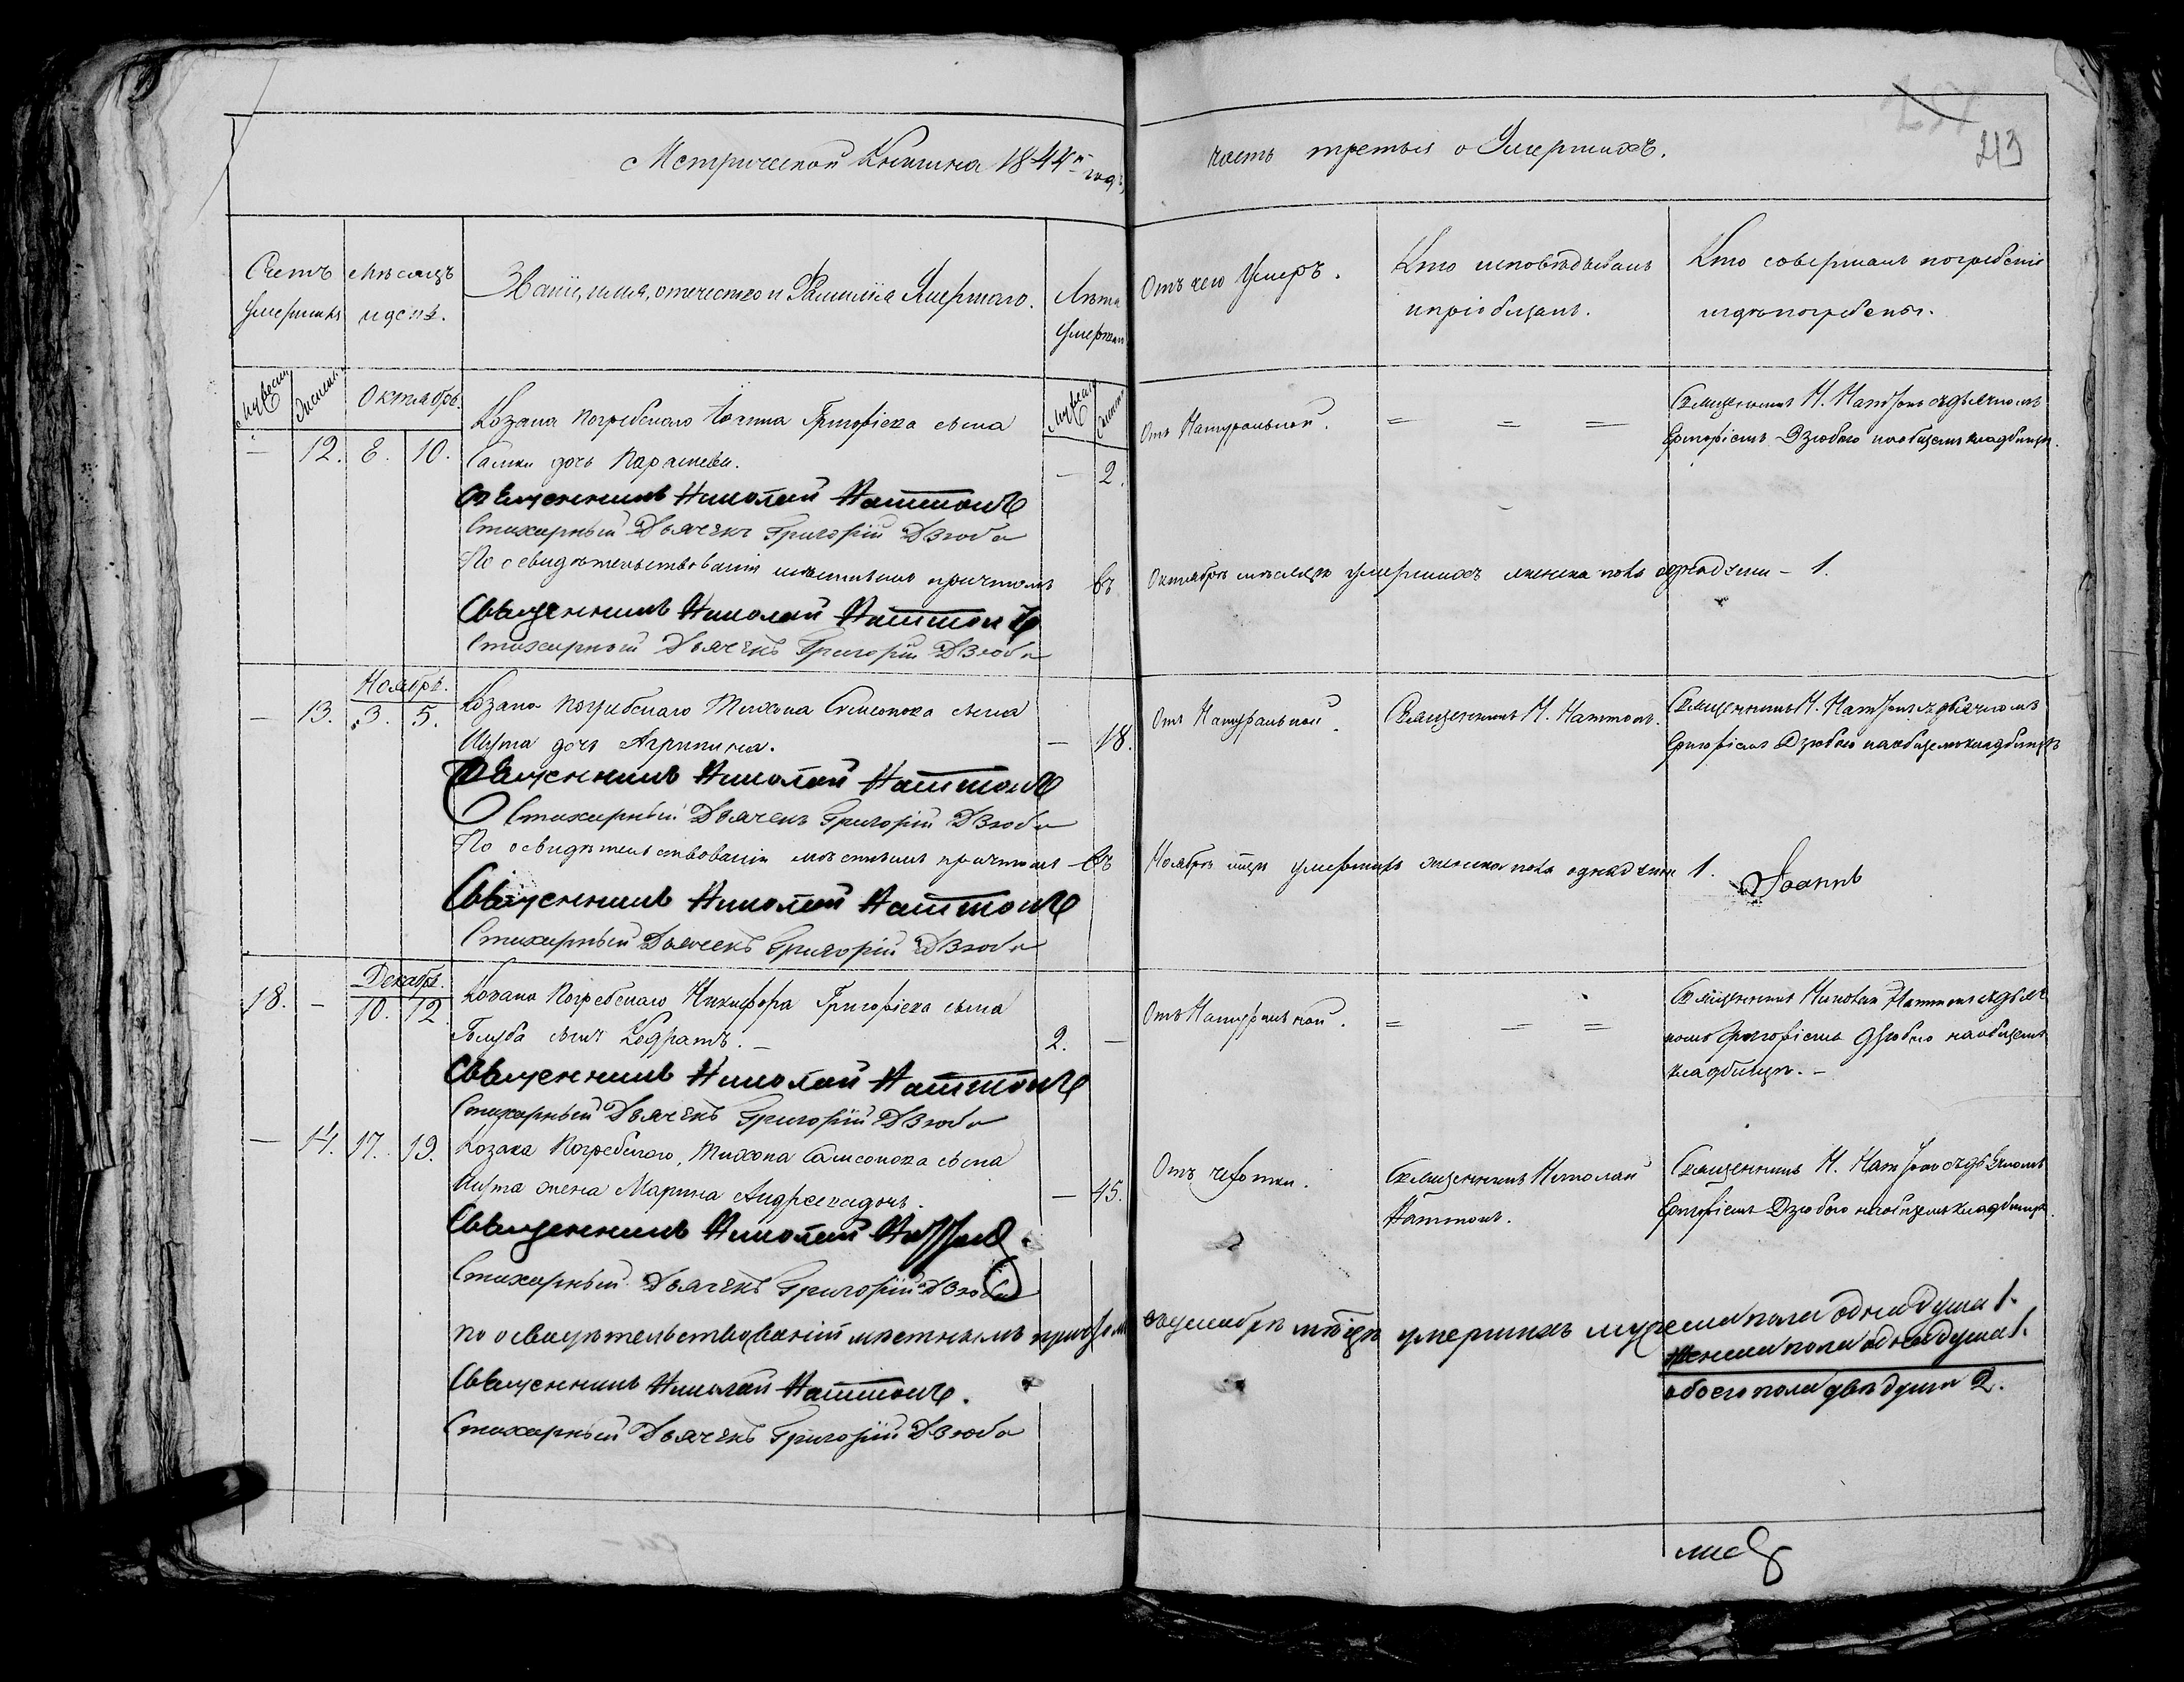 Метрической Книги на 1844й годъ,
часть третья о Умершихъ.
213
Счетъ умершихъ
Мѣсяцъ и день.
Званіе, имя, отечество и Фамилія Умершаго.
Лѣта умершаго
Отъ чего Умеръ.
Кто исповѣдывалъ и пріобщалъ.
Кто совершалъ погребеніе и гдѣ погребены.
Октябрь.
Козака Погребнаго Іоанна Григорієва сына
Отъ Натуральной.
Священникъ Н. Наттонъ съ дьячкомъ
— 12. 8. 10. дочь Параскева. — 2.
Григоріемъ Дзюбою на общемъ кладбищѣ.
Священникъ Николай Наттонъ
Стихарный Дьячекъ Григорій Дзюба
По освидѣтельствованіи мѣстнымъ причтомъ въ Октябрѣ мѣсяцѣ умершихъ женска пола одна душа – 1.
Священникъ Николай Наттонъ
Стихарный Дьячекъ Григорій Дзюба
Ноябрь.
— 13. 3. 5. Козака Погребнаго Тихона сына
Отъ Натуральной.
Священникъ Н. Наттонъ.
Священникъ Н. Наттонъ съ дьячкомъ
дочь Агрипина. — 18.
Григоріемъ Дзюбою на общемъ кладбищѣ
Священникъ Николай Наттонъ
Стихарный Дьячекъ Григорій Дзюба
По освидѣтельствованіи мѣстнымъ причтомъ въ Ноябрѣ мцѣ умершихъ женска пола одна душа 1.
Іоаннъ
Священникъ Николай Наттонъ
Стихарный Дьячекъ Григорій Дзюба
Декабрь.
18. — 10. 12. Козака Погребнаго Никифора Григорієва сына
Отъ Натуральной.
Священникъ Николай Наттонъ съ дьяч
Голуба сынъ Кодратъ. — 2. —
комъ Григоріемъ Дзюбою на общемъ
кладбищѣ. –
Священникъ Николай Наттонъ
Стихарный Дьячекъ Григорій Дзюба
— 14. 17. 19. Козака Погребнаго, Тихона сына
Отъ чехотки.
Священникъ Николай
Священникъ Н. Наттонъ съ дьячкомъ
жена Марина Андреева дочь. — 45.
Наттонъ.
Григоріемъ Дзюбою на общемъ кладбищѣ.
Священникъ Николай Наттонъ.
Стихарный Дьячекъ Григорій Дзюба
по освидѣтельствованіи мѣстнымъ причтомъ въ декабрѣ мѣсяцѣ умершихъ мужеска пола одна душа 1.
женска пола одна душа 1.
обоего пола двѣ души 2.
Священникъ Николай Наттонъ.
Стихарный Дьячекъ Григорій Дзюба